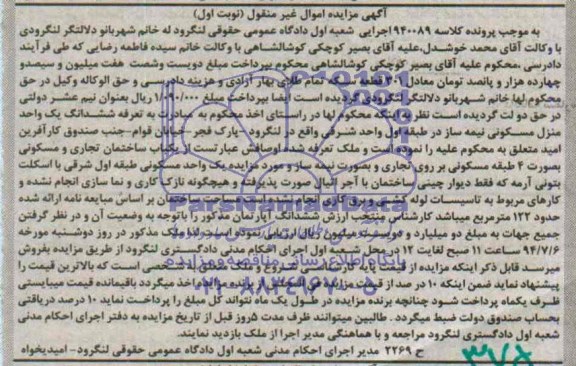 آگهی مزایده اموال غیر منقول (نوبت اول)
به موجب پرونده کلاسه ۹۴۰۰۸۹ اجرایی شعبه اول دادگاه عمومی حقوقی لنگرود له خانم شهربانو دلالتگر لنگرودی
با وکالت آقای محمد خوشدل،علیه آقای بصیر کوچکی کوشالشاهی با وکالت خانم سیده فاطمه رضایی که طی فرآیند
دادرسی ،محکوم علیه آقای بصیر کوچکی کوشالشاهی محکوم بپرداخت مبلغ دویست وشصت هفت میلیون و سیصدو
چهارده هزار و پانصد تومان معادل ۳۰۰ قطعه سکه تمام طلای بهار آزادی و هزینه دادرسی و حق الوکاله وکیل در حق
محکوم لها خانم شهربانو دلالتگر لنگرودی گردیده است ایضا بپرداخت مبلغ ریال بعنوان نیم عشر دولتی
در حق دولت گردیده است نظر به اینکه محکوم لها در راستای اخذ محکوم به مبادرت به تعرفه ششدانگ یک واحد
منزل مسکونی نیمه ساز در طبقه اول واحد شرقی واقع در لنگرود - پارک فجر خیابان قوام-جنب صندوق کارآفرین
امید متعلق به محکوم علیه را نموده است و ملک تعرفه شده اوصافش عبارتست از یکباب ساختمان تجاری و مسکونی
بصورت ۴ طبقه مسکونی بر روی تجاری و بصورت نیمه ساز و مورد مزایده یک واحد مسکونی طبقه اول شرقی با اسکلت
بتونی آرمه که فقط دیوار چینی ساختمان با آجر سفال صورت پذیرفته و هیچگونه نازک کاری و نما سازی انجام نشده و
کارهای مربوط به تاسیسات لوله کشی و برق کاری مساحت ساختمان بر اساس مبایعه نامه ارائه شده
حدود ۱۲۲ مترمربع میباشد کارشناس منتخب ارزش ششدانگ آپارتمان مذکور را باتوجه به وضعیت آن و در نظر گرفتن
جمیع جهات به مبلغ دو میلیارد و میلیون ریال ارزیابی نموده است لذا ملک مذکور در روز دوشنبه مورخه
۹۴/۷/۶ ساعت ۱۱ صبح لغایت ۱۲ در محل شعبه اول اجرای احکام مدنی دادگستری لنگرود از طریق مزایده بفروش
میرسد قابل ذکر اینکه مزایده از قیمت پایه کارشناسی شروع و ملک متعلق به شخصی است که بالاترین قیمت را
پیشنهاد نماید ضمن اینکه ۱۰ در صد از قیمت مزایده اخذ میگردد باقیمانده قیمت میبایستی
ظرف یکماه پرداخت شود چنانچه برنده مزایده در طول یک ماه نتواند کل مبلغ را پرداخت نماید ۱۰ درصد دریافتی
بحساب صندوق دولت ضبط میگردد . طالبین میتوانند ظرف مدت ۵روز قبل از تاریخ مزایده به دفتر اجرای احکام مدنی
شعبه اول دادگستری لنگرود مراجعه و با هماهنگی مدیر اجرا از ملک بازدید نمایند.
ح ۲۲۶۹ مدیر اجرای احکام مدنی شعبه اول دادگاه عمومی حقوقی لنگرود- امیدیخواه
ParsNamadData
پایگاه اطلاع رسانی مناقصه و مزایده